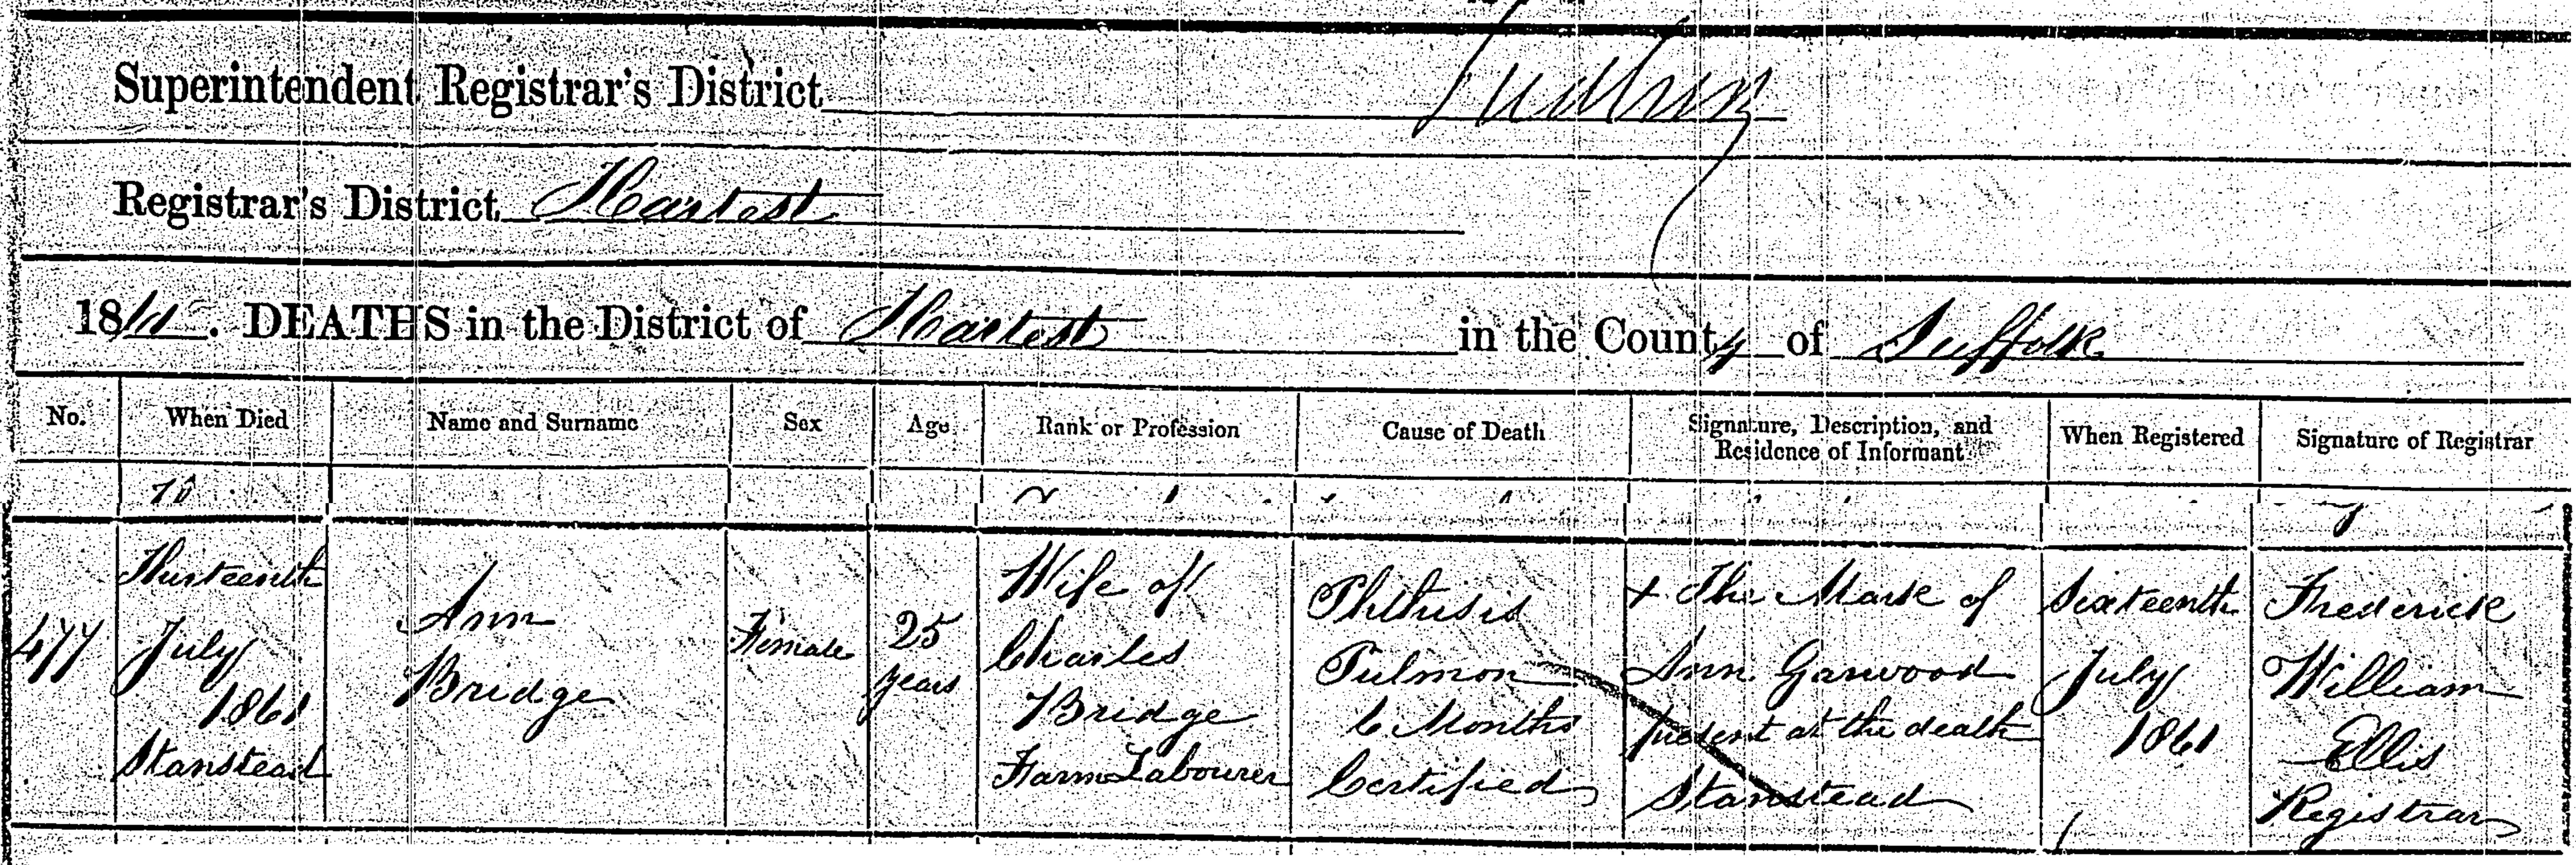 Superintendent Registrar's District Sudbury
Registrar's District Hartest
1861. DEATHS in the District of Hartest in the County of Suffolk
No. When Died Name and Surname Sex Age Rank or Profession Cause of Death Signature, Description, and Residence of Informant When Registered Signature of Registrar
477
Thirteenth
July
1861
Stanstead
Ann
Bridge
Female
25
years
Wife of
Charles
Bridge
Farm Labourer
Phthisis
Pulmon
6 Months
Certified
+ The Mark of
Ann Garwood
present at the death
Stanstead
Sixteenth
July
1861
Frederick
William
Ellis
Registrar